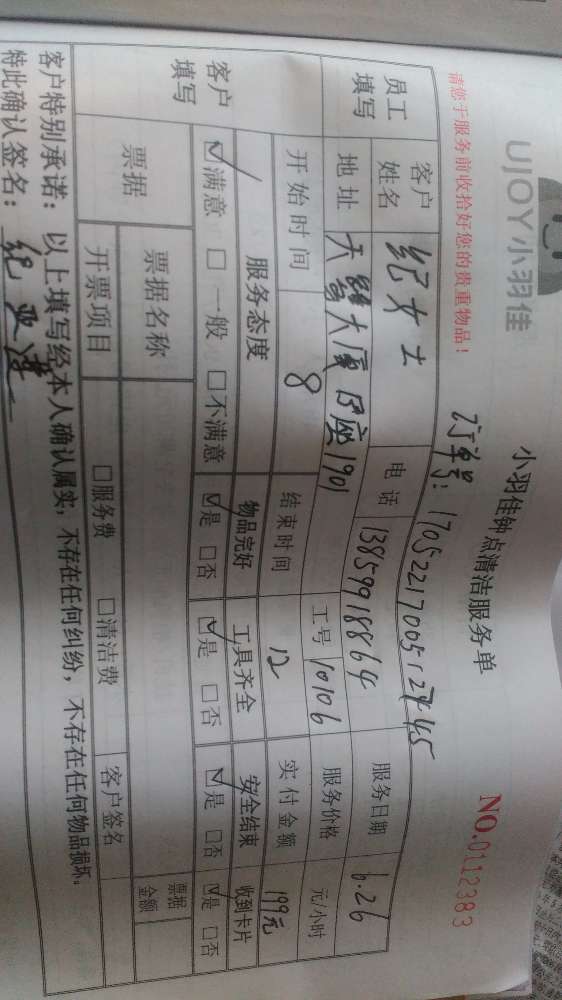 UJOY小羽佳
小羽佳钟点清洁服务单
NO.0112383
请您于服务前收拾好您的贵重物品！
订单号：
员工填写 客户姓名 纪女士 电话 13859918864 服务日期 6.26
地址 天鹭大厦B座1901 工号 10106 服务价格 元/小时
开始时间 8 结束时间 12 实付金额 199元
客户填写 服务态度 物品完好 工具齐全 安全结束 收到卡片
☑满意 □一般 □不满意 ☑是 □否 ☑是 □否 ☑是 □否 ☑是 □否
票据 票据名称 票据金额
开票项目 □服务费 □清洁费 客户签名
客户特别承诺：以上填写经本人确认属实，不存在任何纠纷，不存在任何物品损坏。
特此确认签名：纪亚